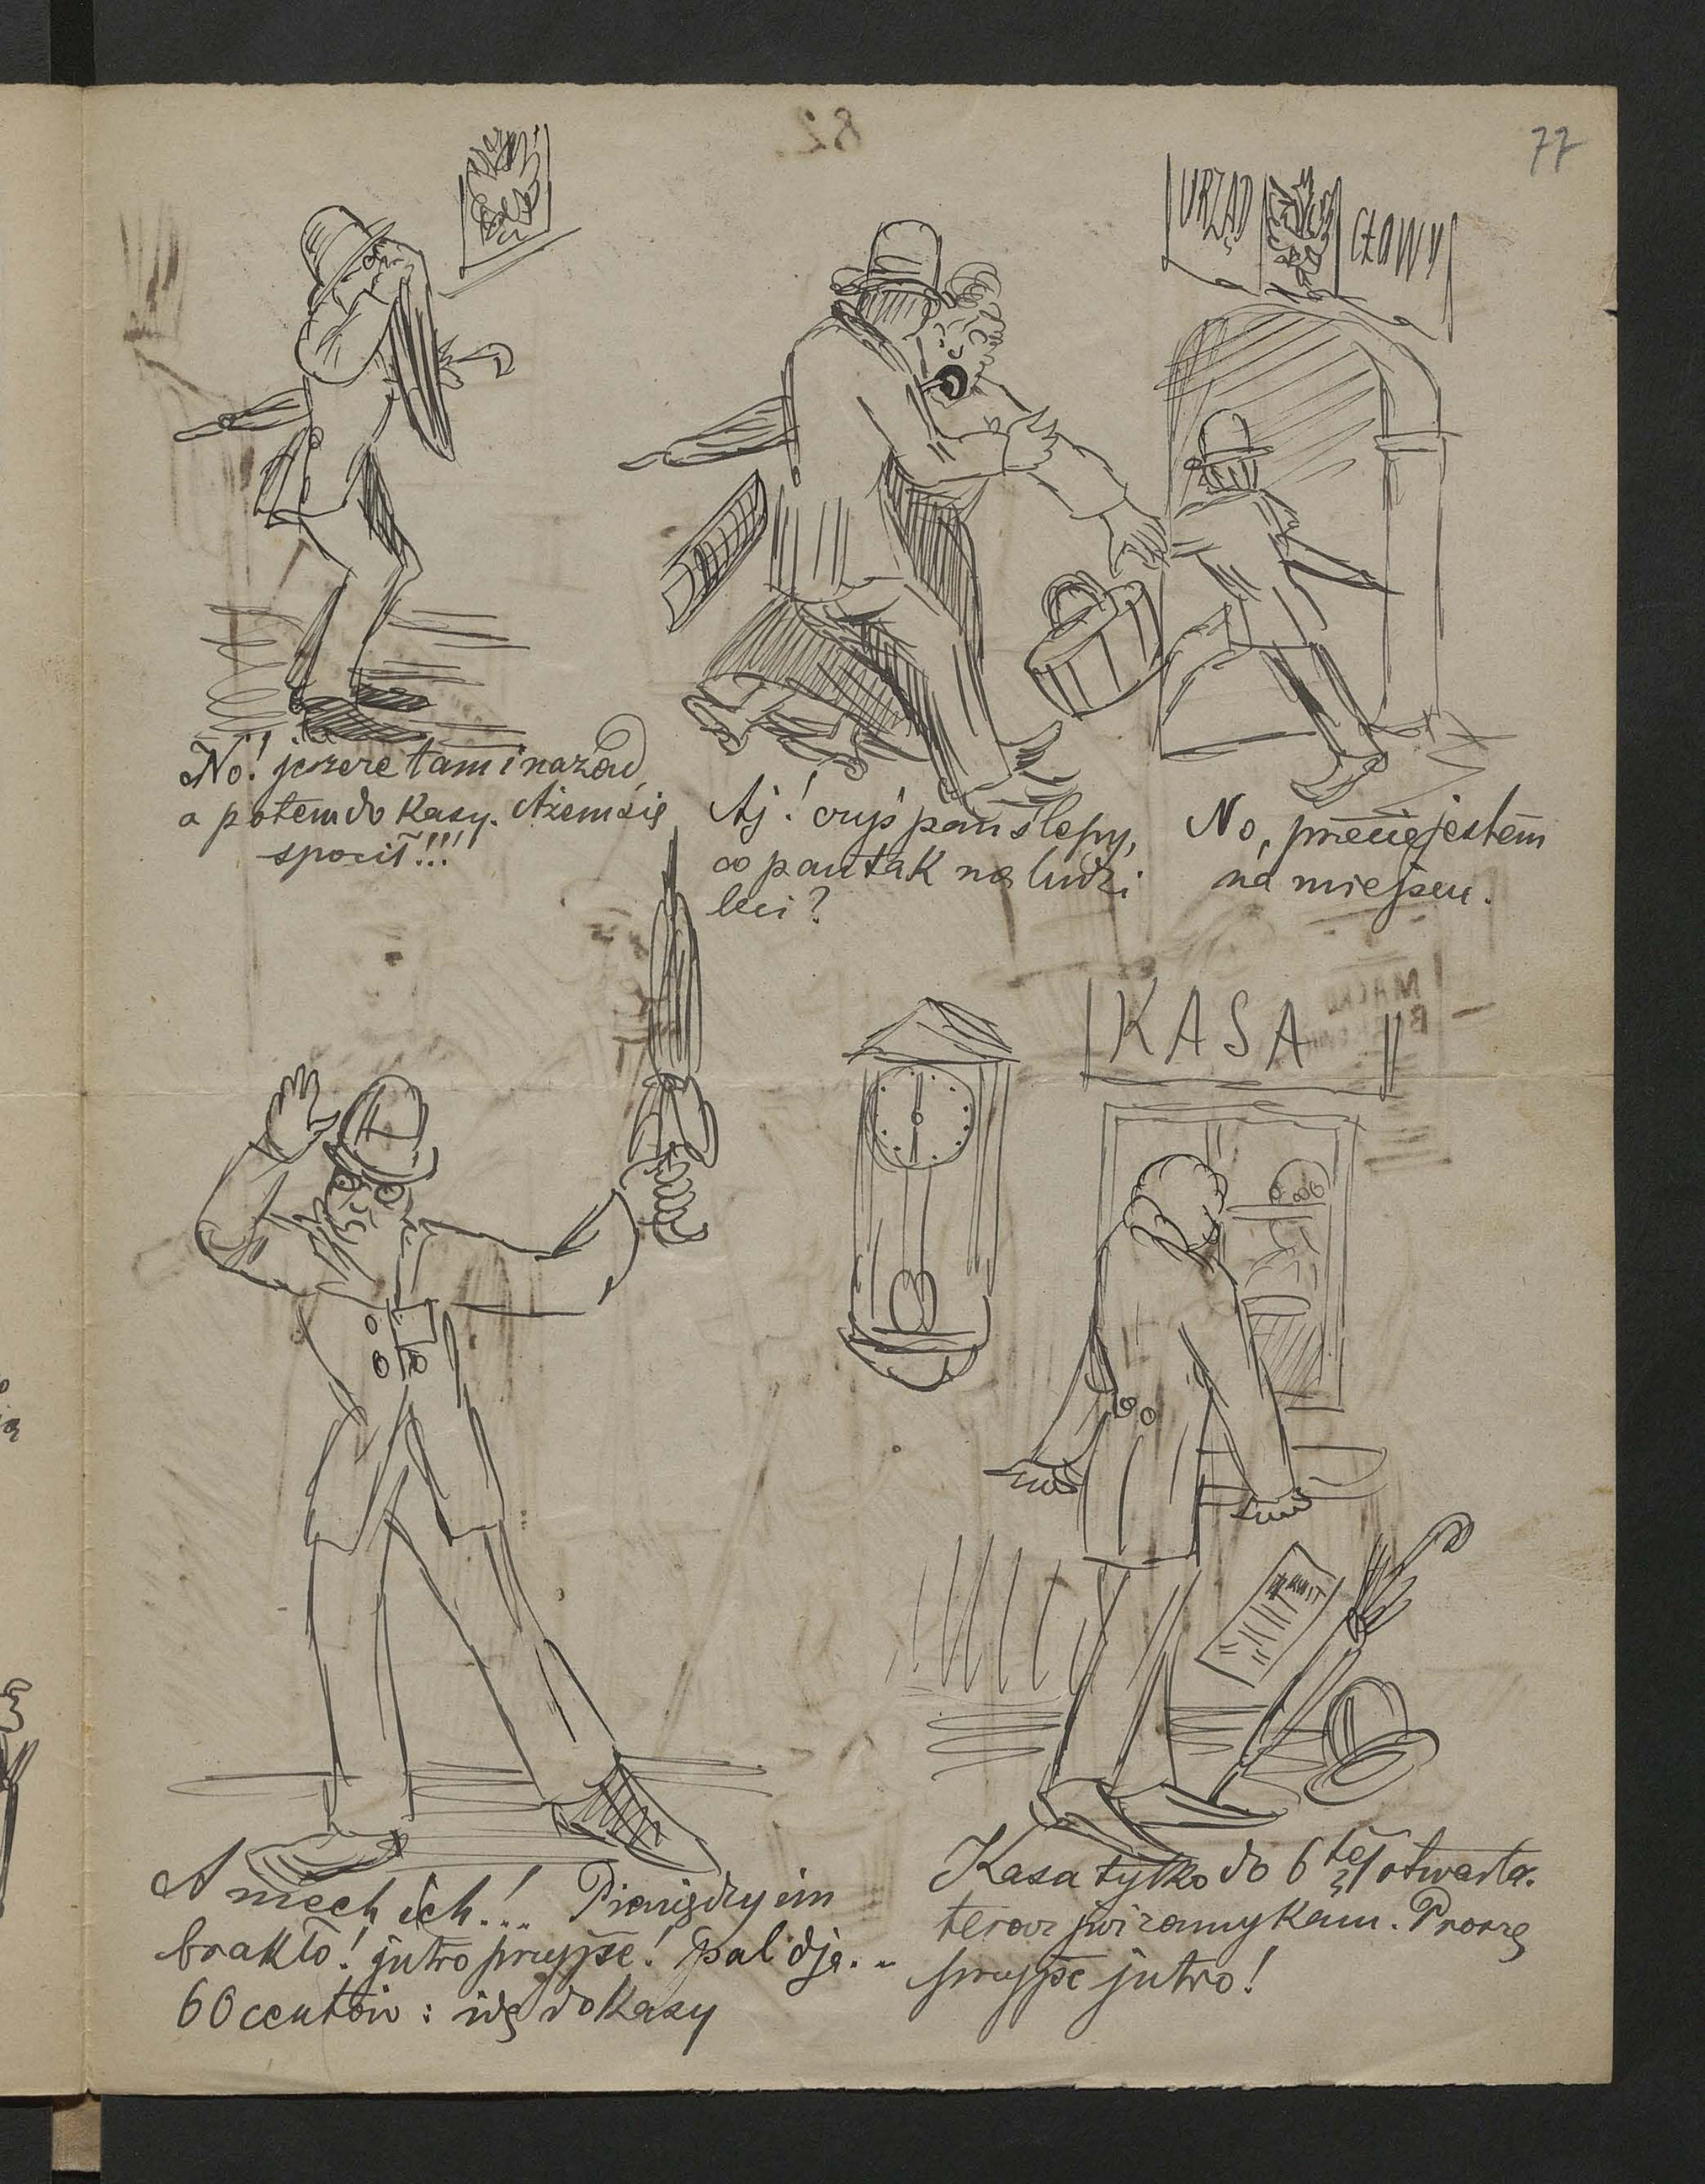 77
82
URZĄD CŁOWY
No! jeszcze tam i nazad,
a potem do Kasy. Ażem się
spocił!!!
Aj! czyś pan ślepy,
co pan tak na ludzi
leci?
No, przecie jestem
na miejscu.
KASA
KWIT
A niech ich!... Pieniędzy im
brakło! jutro przyjść! pal djo...
60 centów: idę do Kasy
Kasa tylko do 6tej otwarta.
teraz już zamykam. Proszę
przyjść jutro!